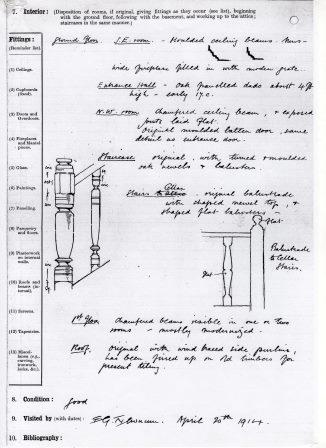 7. Interior: (Disposition of rooms, if original, giving fittings as they occur (see list), beginning
with the ground floor, following with the basement, and working up to the attics;
staircases in the same manner:)
Fittings:
(Reminder list).
(1) Ceilings.
(2) Cupboards
(fixed).
(3) Doors and
(4) Fireplaces
and Mantel
pieces.
(5) Glass.
(6) Paintings.
(7) Panelling.
(8) Pargetting
and floors.
(9) Plasterwork
on internal
walls.
(10) Roofs and
beams (in-
ternal).
(11) Screens.
(12) Tapestries.
(13) Miscel-
laneous (e.g.,
carving,
ironwork,
locks, &c.).
Ground floor S.E. room. - Moulded ceiling beams
Wide fireplace filled in with modern grate.
Entrance Hall - Oak panelled dado about 4 ft
high - early 17.c.
N.W. room chamfered ceiling beam, & exposed
joists laid flat.
Original moulded batten door, same
detail as entrance door.
Staircase original, with turned & moulded
oak newels & baluster.
Cellar
Stairs original balustrade
with shaped newel top, &
shaped flat balusters -
flat
Balustrade
to cellar
stairs.
1st floor chamfered beams visible in one or two
rooms - mostly modernized.
Roof. original with wind braced side purlins,
has been firred up on old timbers for
present tiling.
8. Condition: good
9. Visited by (with dates): April 20th 1914.
10. Bibliography: